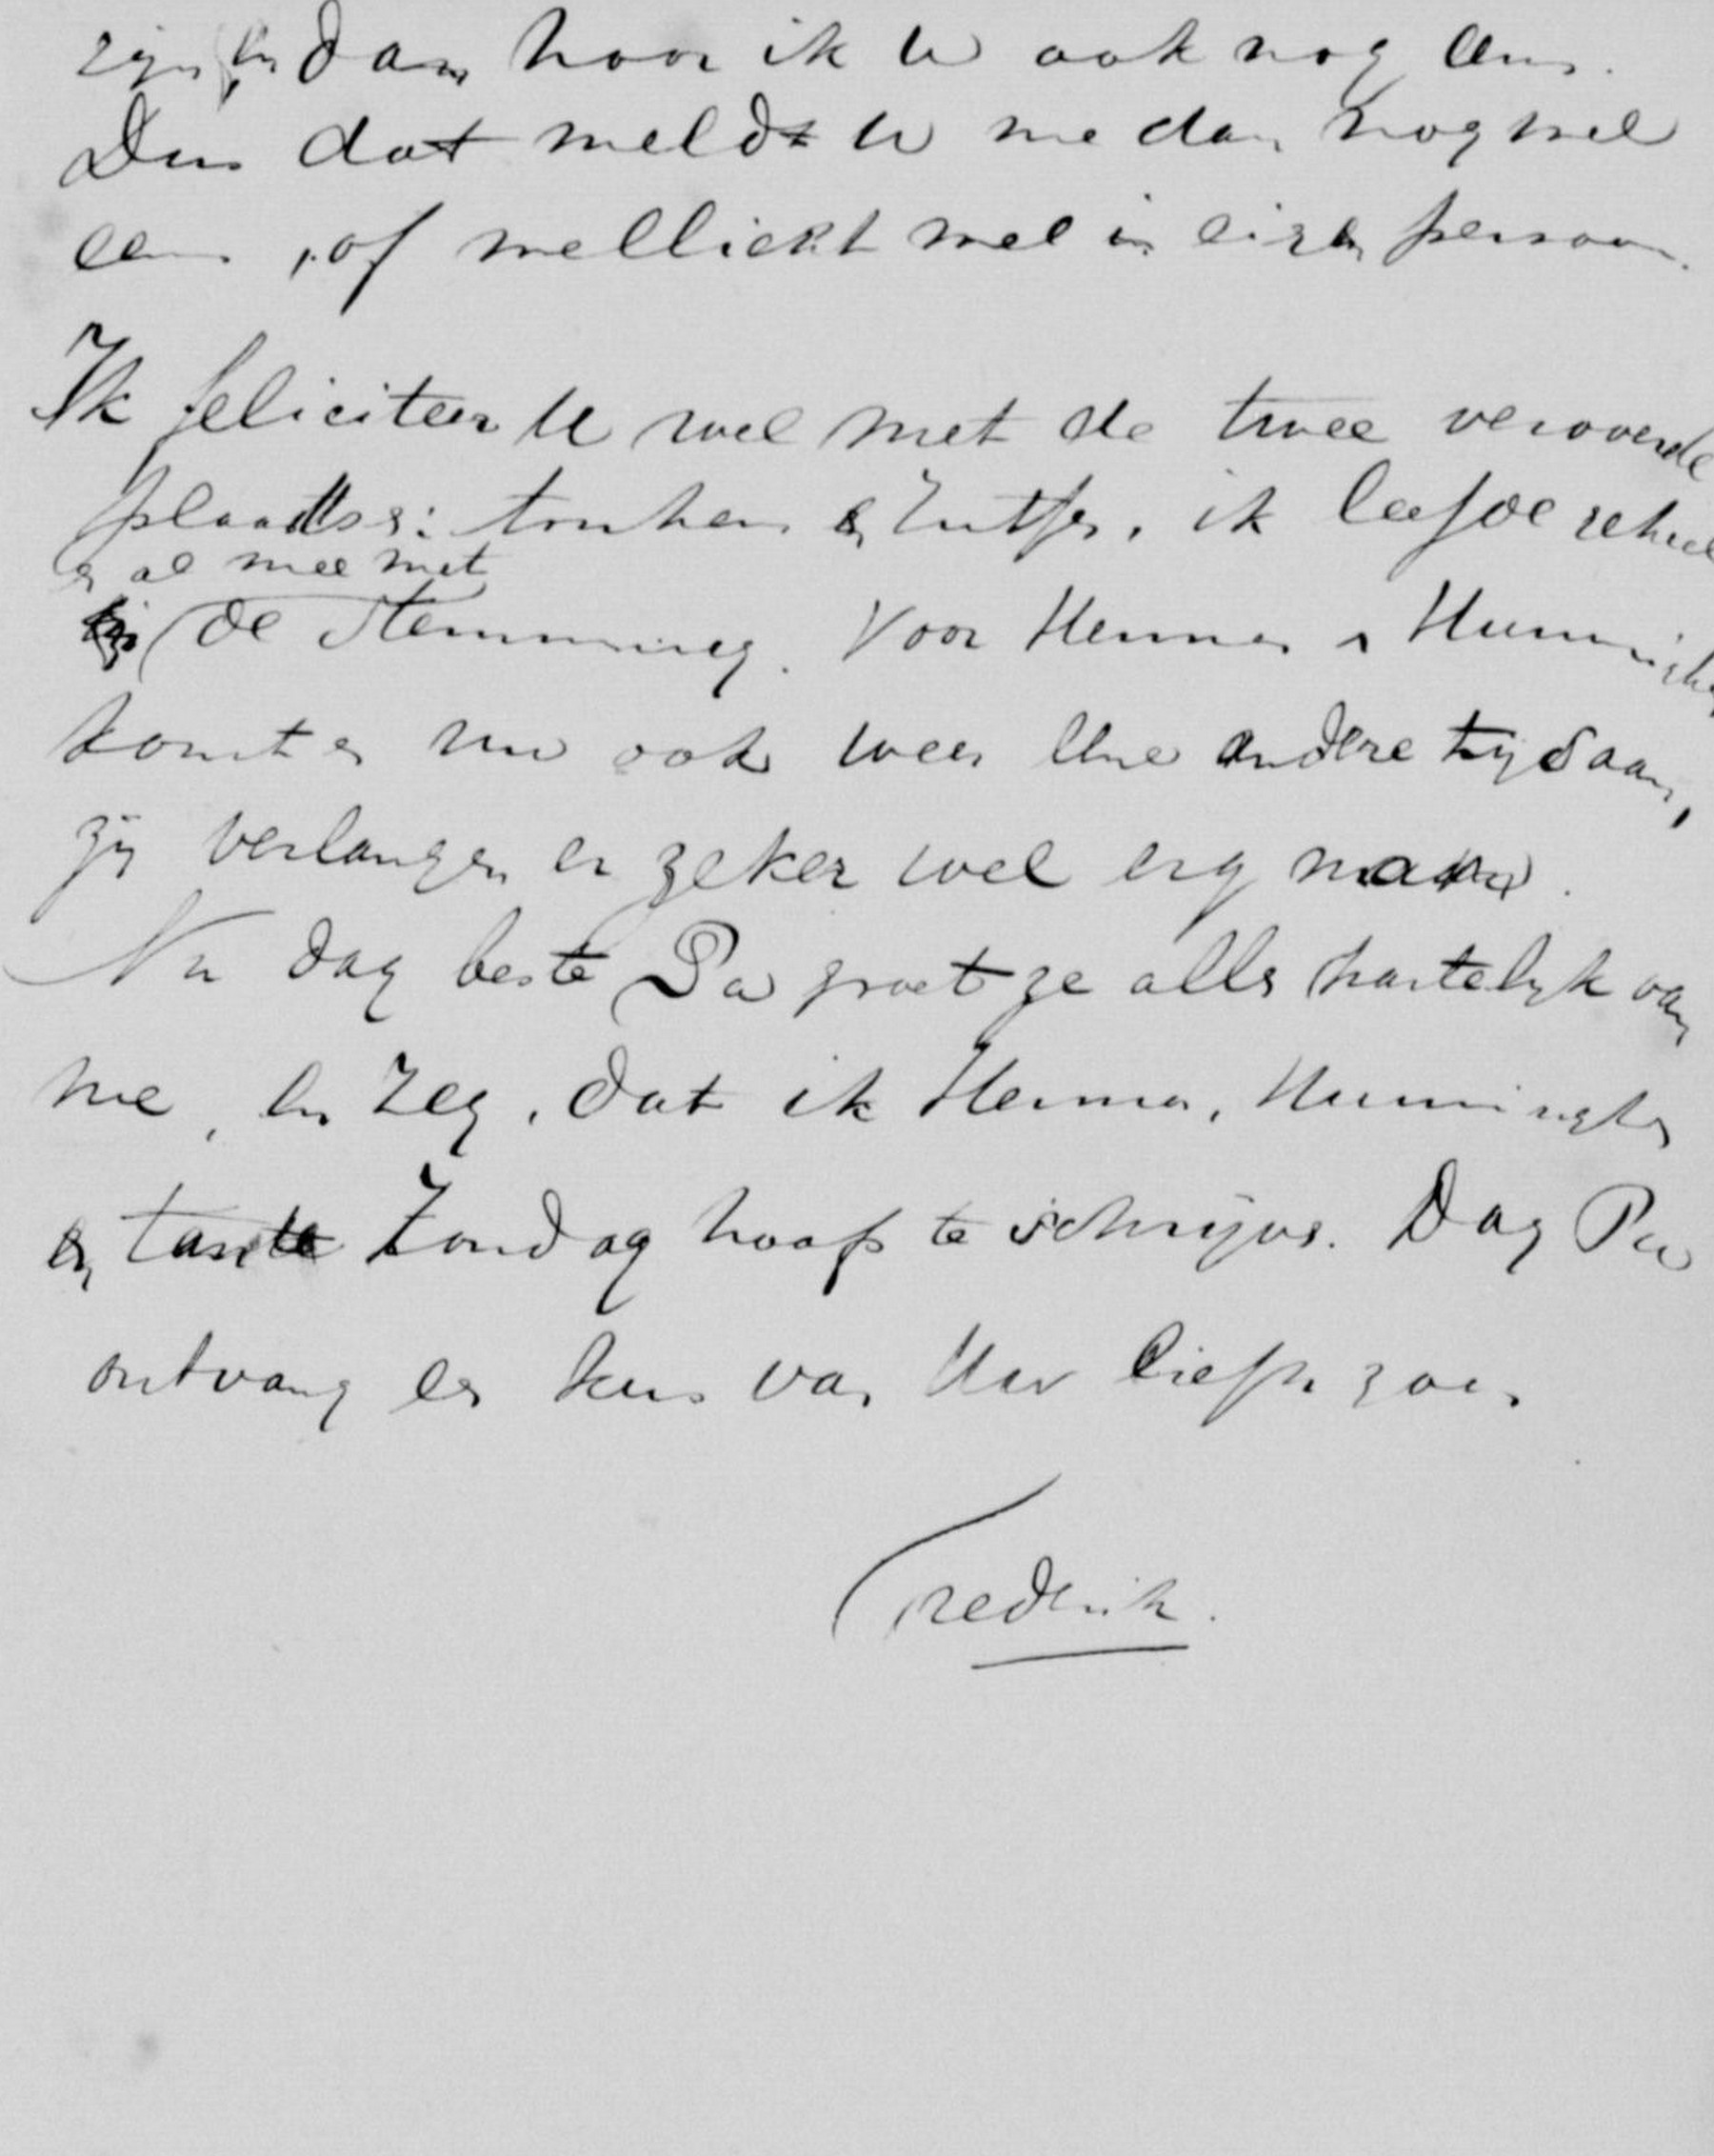 zijn en dan hoor ik U ook nog eens.
Dus dat meldt U me dan nog wel
eens, of wellicht wel in eigen persoon.
Ik feliciteer U wel met de twee veroverde
plaatsen: en Zutfen, ik leefde geheel
er al mee met
de stemming. Voor Henna en
komt er nu ook weer eene andere tijd aan,
zij verlangen er zeker wel erg naar.
Nu dag beste Pa groet ze allen hartelijk van
me, en zeg, dat ik Henna,
en tante Zondag hoop te schrijven. Dag Pa
ontvang een kus van Uw liefh. zoon
Frederik.